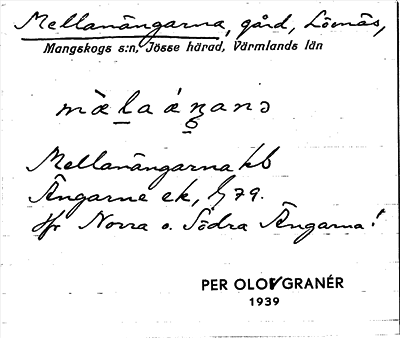 Mellanängarna, gård, Lövnäs,
Mangskogs s:n, Jösse härad, Värmlands län
Mellanängarna kb
Ängarne ek,
Jfr Norra o. Södra Ängarna!
PER OLOV GRANÉR
1939